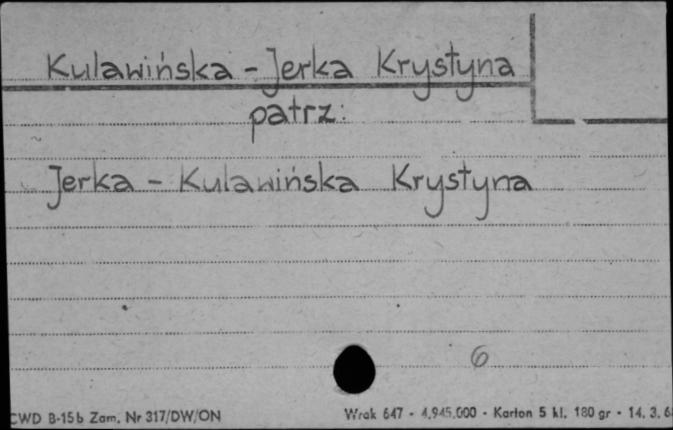 Kulawińska - Jerka Krystyna
patrz:
Jerka - Kulawińska Krystyna
6
CWD B-15b Zam. Nr 317/DW/ON
Wrak 647 - 4.945.000 - Karton 5 kl. 180 gr - 14. 3. 6